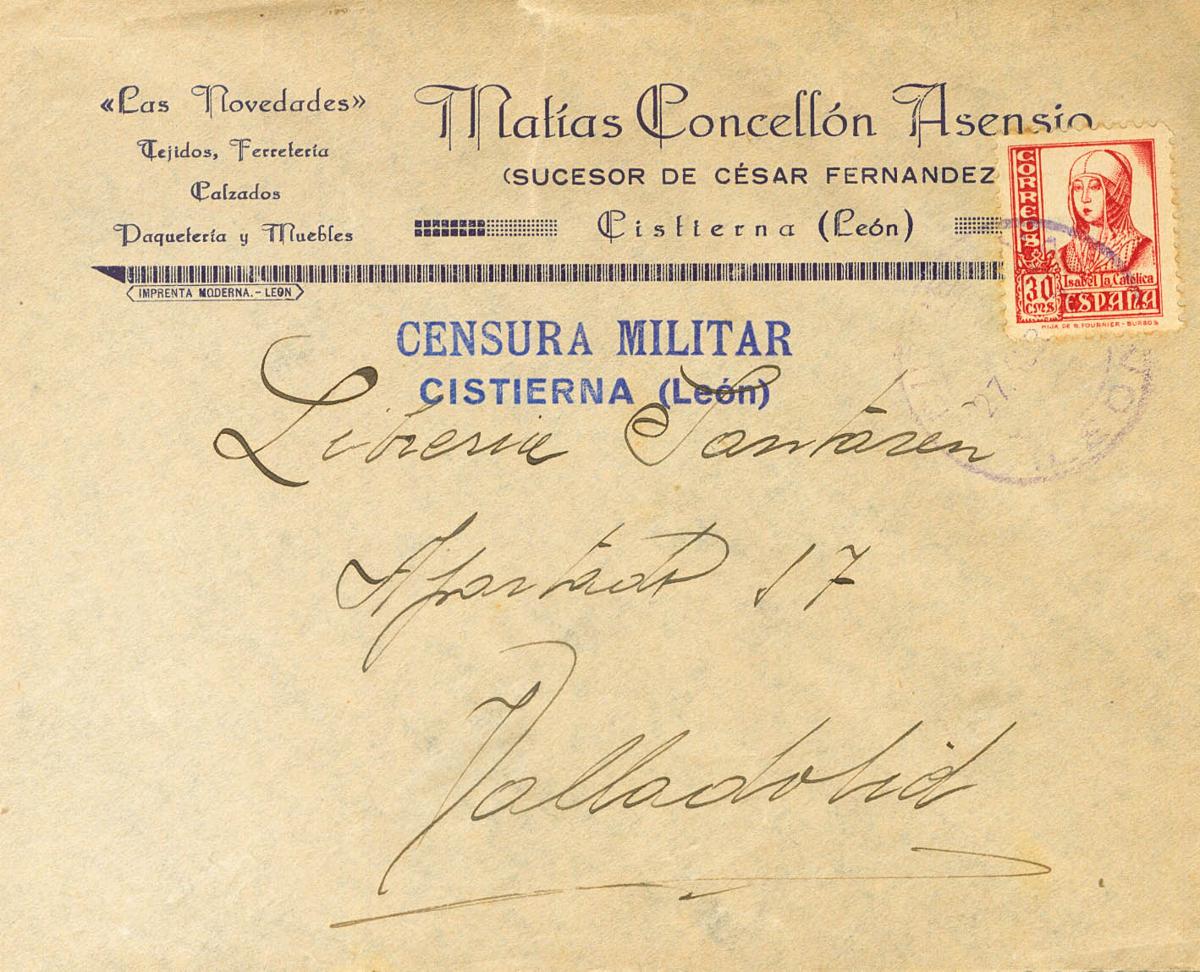 «Las Novedades»
Tejidos, Ferretería
Calzados
Paquetería y Muebles
IMPRENTA MODERNA.-LEÓN
Matías Concellón Asensio
(SUCESOR DE CÉSAR FERNANDEZ
Cistierna (León)
CORREOS
30 CMS
Isabel la Católica
ESPAÑA
HIJA DE B. FOURNIER - BURGOS
CENSURA MILITAR
CISTIERNA (León)
27
Libreria Santarén
Apartado 17
Valladolid